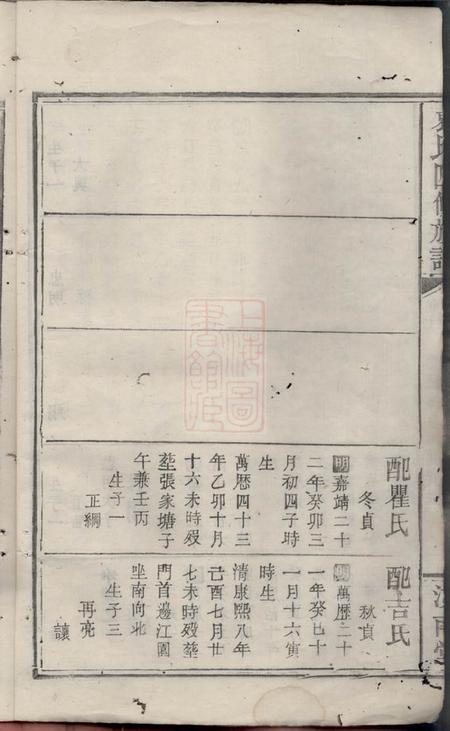 氏四修族譜
配瞿氏
冬貞
明嘉靖二十
二年癸卯三
月初四子時
生
萬曆四十三
年乙卯十月
十六未時殁
塟張家塘子
午兼壬丙
生子一
正綱
配言氏
秋貞
明萬曆二十
一年癸巳十
一月十六寅
時生
清康熙八年
己酉七月廿
七未時殁塟
門首邊江園
坐南向北
生子三
再亮
讓
上海圖書館藏